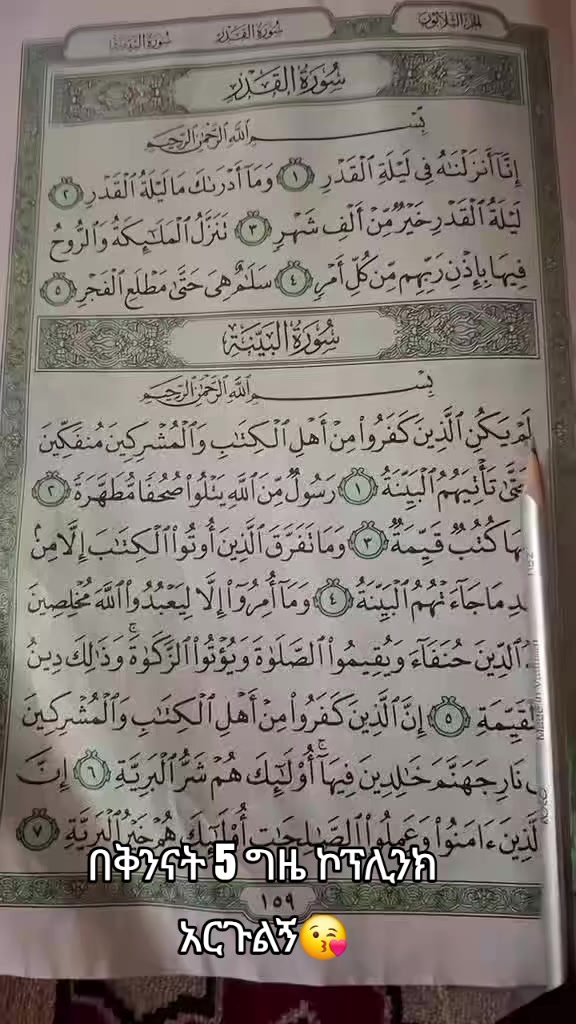 الجزء الثلاثون سورة القدر سورة البينة
سُورَةُ القَدْرِ
بِسْمِ ٱللَّهِ ٱلرَّحْمَٰنِ ٱلرَّحِيمِ
إِنَّآ أَنزَلْنَٰهُ فِى لَيْلَةِ ٱلْقَدْرِ ١ وَمَآ أَدْرَىٰكَ مَا لَيْلَةُ ٱلْقَدْرِ ٢
لَيْلَةُ ٱلْقَدْرِ خَيْرٌ مِّنْ أَلْفِ شَهْرٍ ٣ تَنَزَّلُ ٱلْمَلَٰٓئِكَةُ وَٱلرُّوحُ
فِيهَا بِإِذْنِ رَبِّهِم مِّن كُلِّ أَمْرٍ ٤ سَلَٰمٌ هِىَ حَتَّىٰ مَطْلَعِ ٱلْفَجْرِ ٥
سُورَةُ البَيِّنَةِ
بِسْمِ ٱللَّهِ ٱلرَّحْمَٰنِ ٱلرَّحِيمِ
لَمْ يَكُنِ ٱلَّذِينَ كَفَرُوا۟ مِنْ أَهْلِ ٱلْكِتَٰبِ وَٱلْمُشْرِكِينَ مُنفَكِّينَ
تَّىٰ تَأْتِيَهُمُ ٱلْبَيِّنَةُ ١ رَسُولٌ مِّنَ ٱللَّهِ يَتْلُوا۟ صُحُفًا مُّطَهَّرَةً ٢
هَا كُتُبٌ قَيِّمَةٌ ٣ وَمَا تَفَرَّقَ ٱلَّذِينَ أُوتُوا۟ ٱلْكِتَٰبَ إِلَّا مِنۢ
دِ مَا جَآءَتْهُمُ ٱلْبَيِّنَةُ ٤ وَمَآ أُمِرُوٓا۟ إِلَّا لِيَعْبُدُوا۟ ٱللَّهَ مُخْلِصِينَ
ٱلدِّينَ حُنَفَآءَ وَيُقِيمُوا۟ ٱلصَّلَوٰةَ وَيُؤْتُوا۟ ٱلزَّكَوٰةَ ۚ وَذَٰلِكَ دِينُ
لْقَيِّمَةِ ٥ إِنَّ ٱلَّذِينَ كَفَرُوا۟ مِنْ أَهْلِ ٱلْكِتَٰبِ وَٱلْمُشْرِكِينَ
نَارِ جَهَنَّمَ خَٰلِدِينَ فِيهَآ ۚ أُو۟لَٰٓئِكَ هُمْ شَرُّ ٱلْبَرِيَّةِ ٦ إِنَّ
لَّذِينَ ءَامَنُوا۟ وَعَمِلُوا۟ ٱلصَّٰلِحَٰتِ أُو۟لَٰٓئِكَ هُمْ خَيْرُ ٱلْبَرِيَّةِ ٧
በቅንናት 5 ግዜ ኮፕሊንክ
١٥٩
አርጉልኝ😘